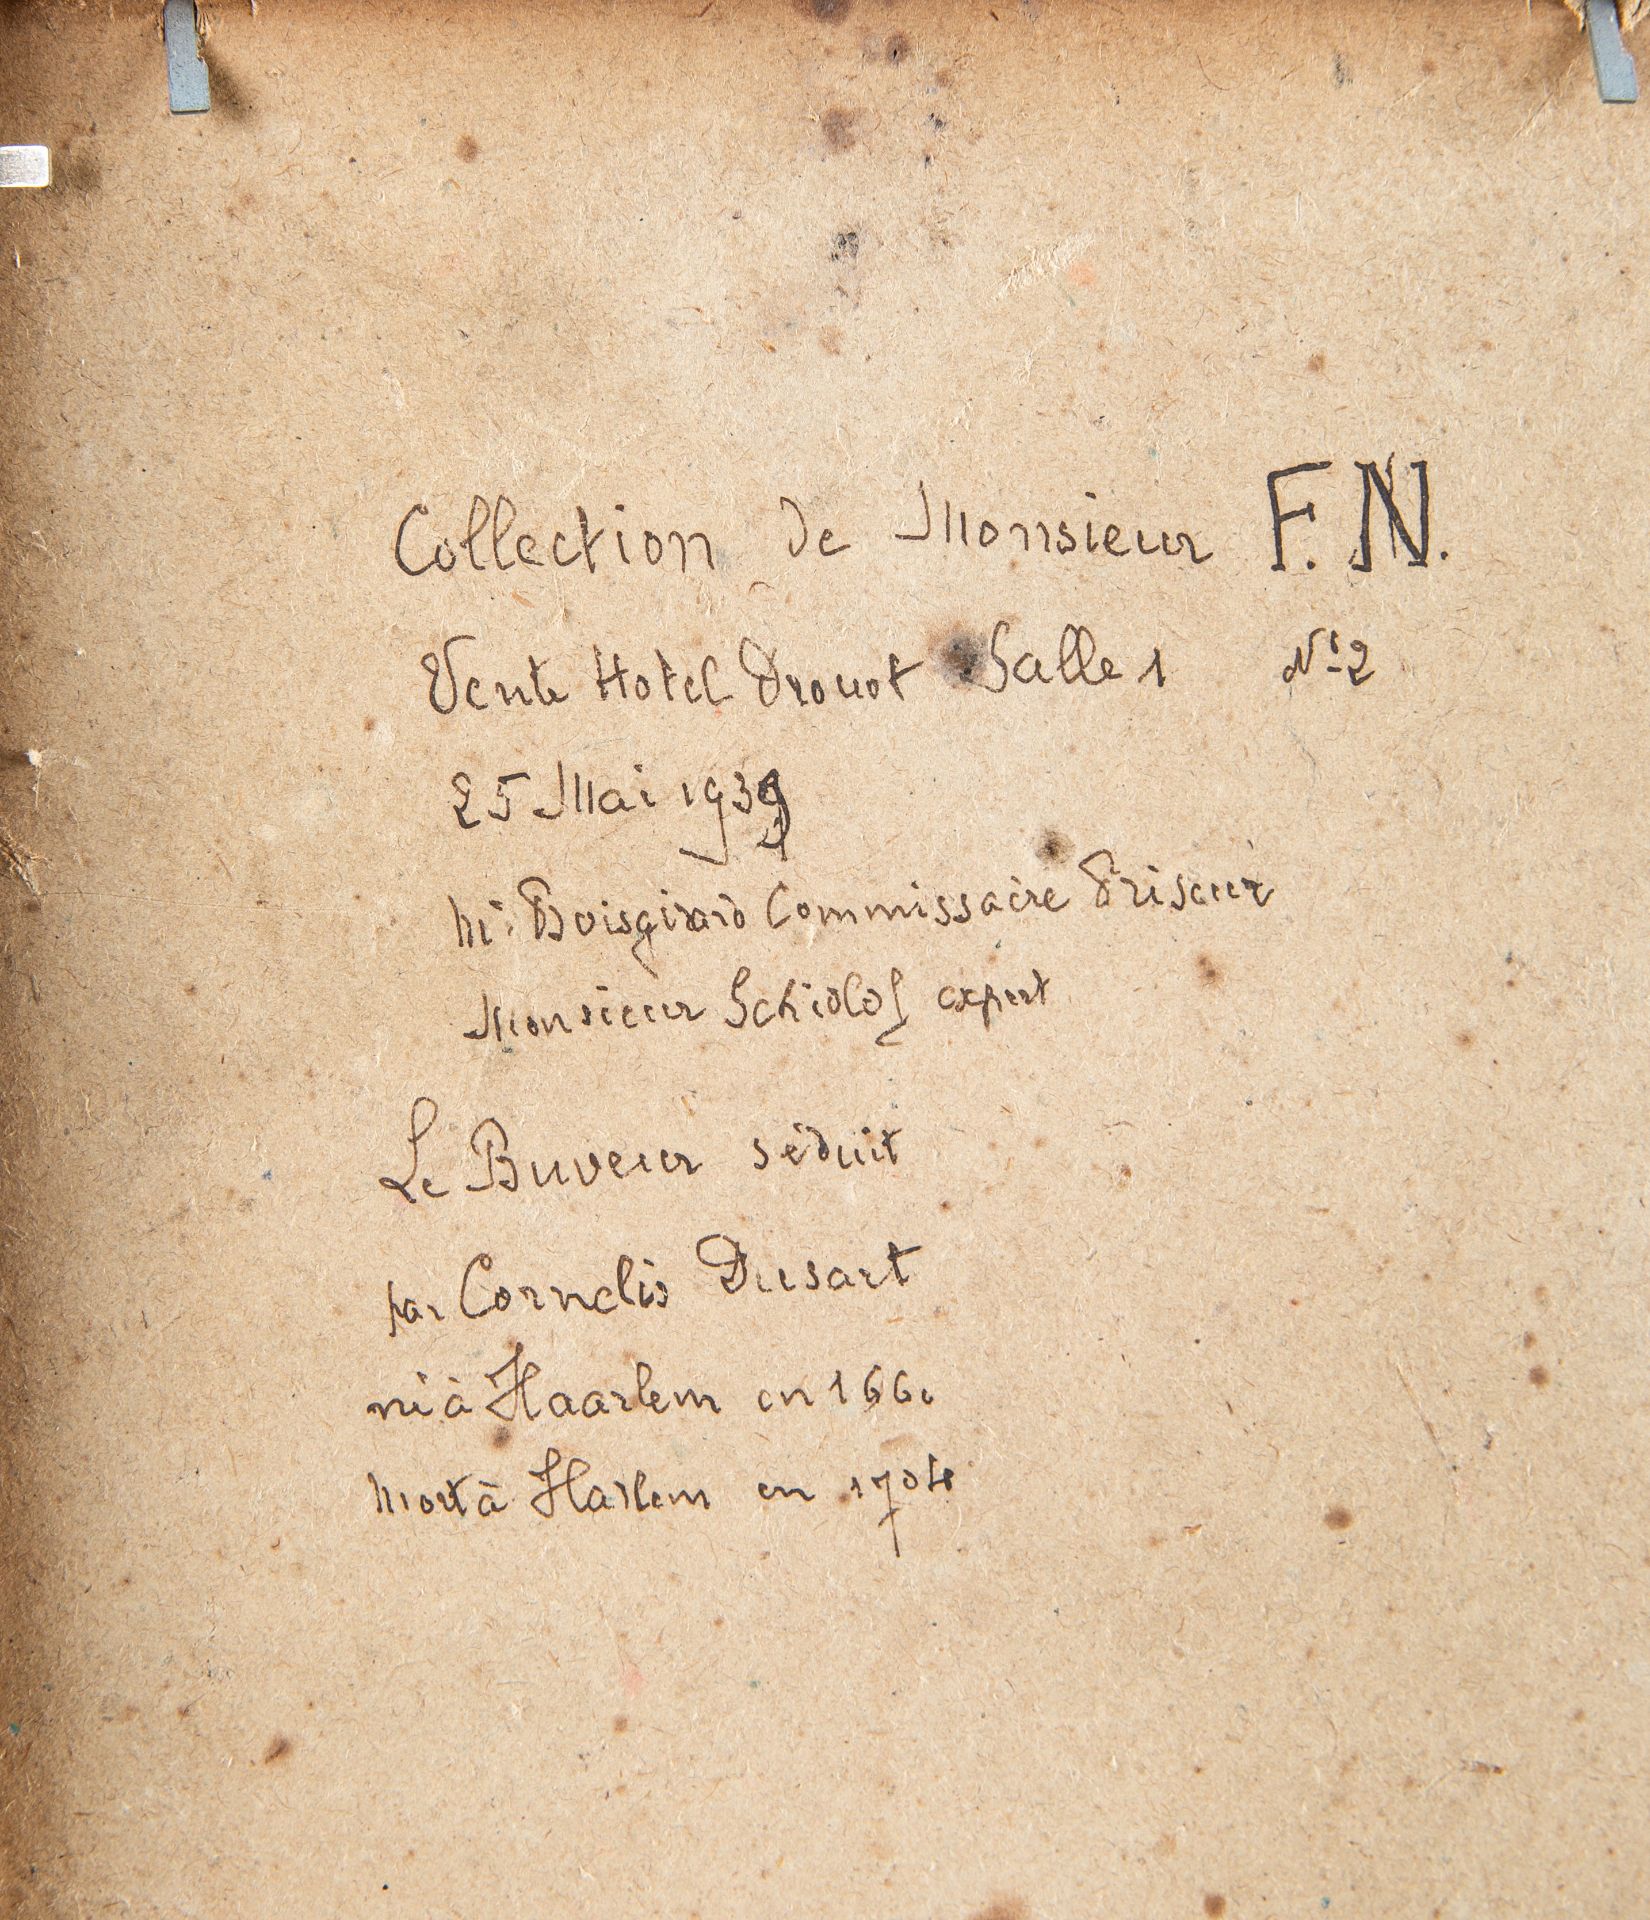 Collection de Monsieur F. N.
Vente Hotel Drouot Salle 1 N° 2
25 Mai 1939
Me Boisgirard Commissaire Priseur
Monsieur Schidlof expert
Le Buveur séduit
par Cornelis Dusart
né à Haarlem en 1660
mort à Harlem en 1704